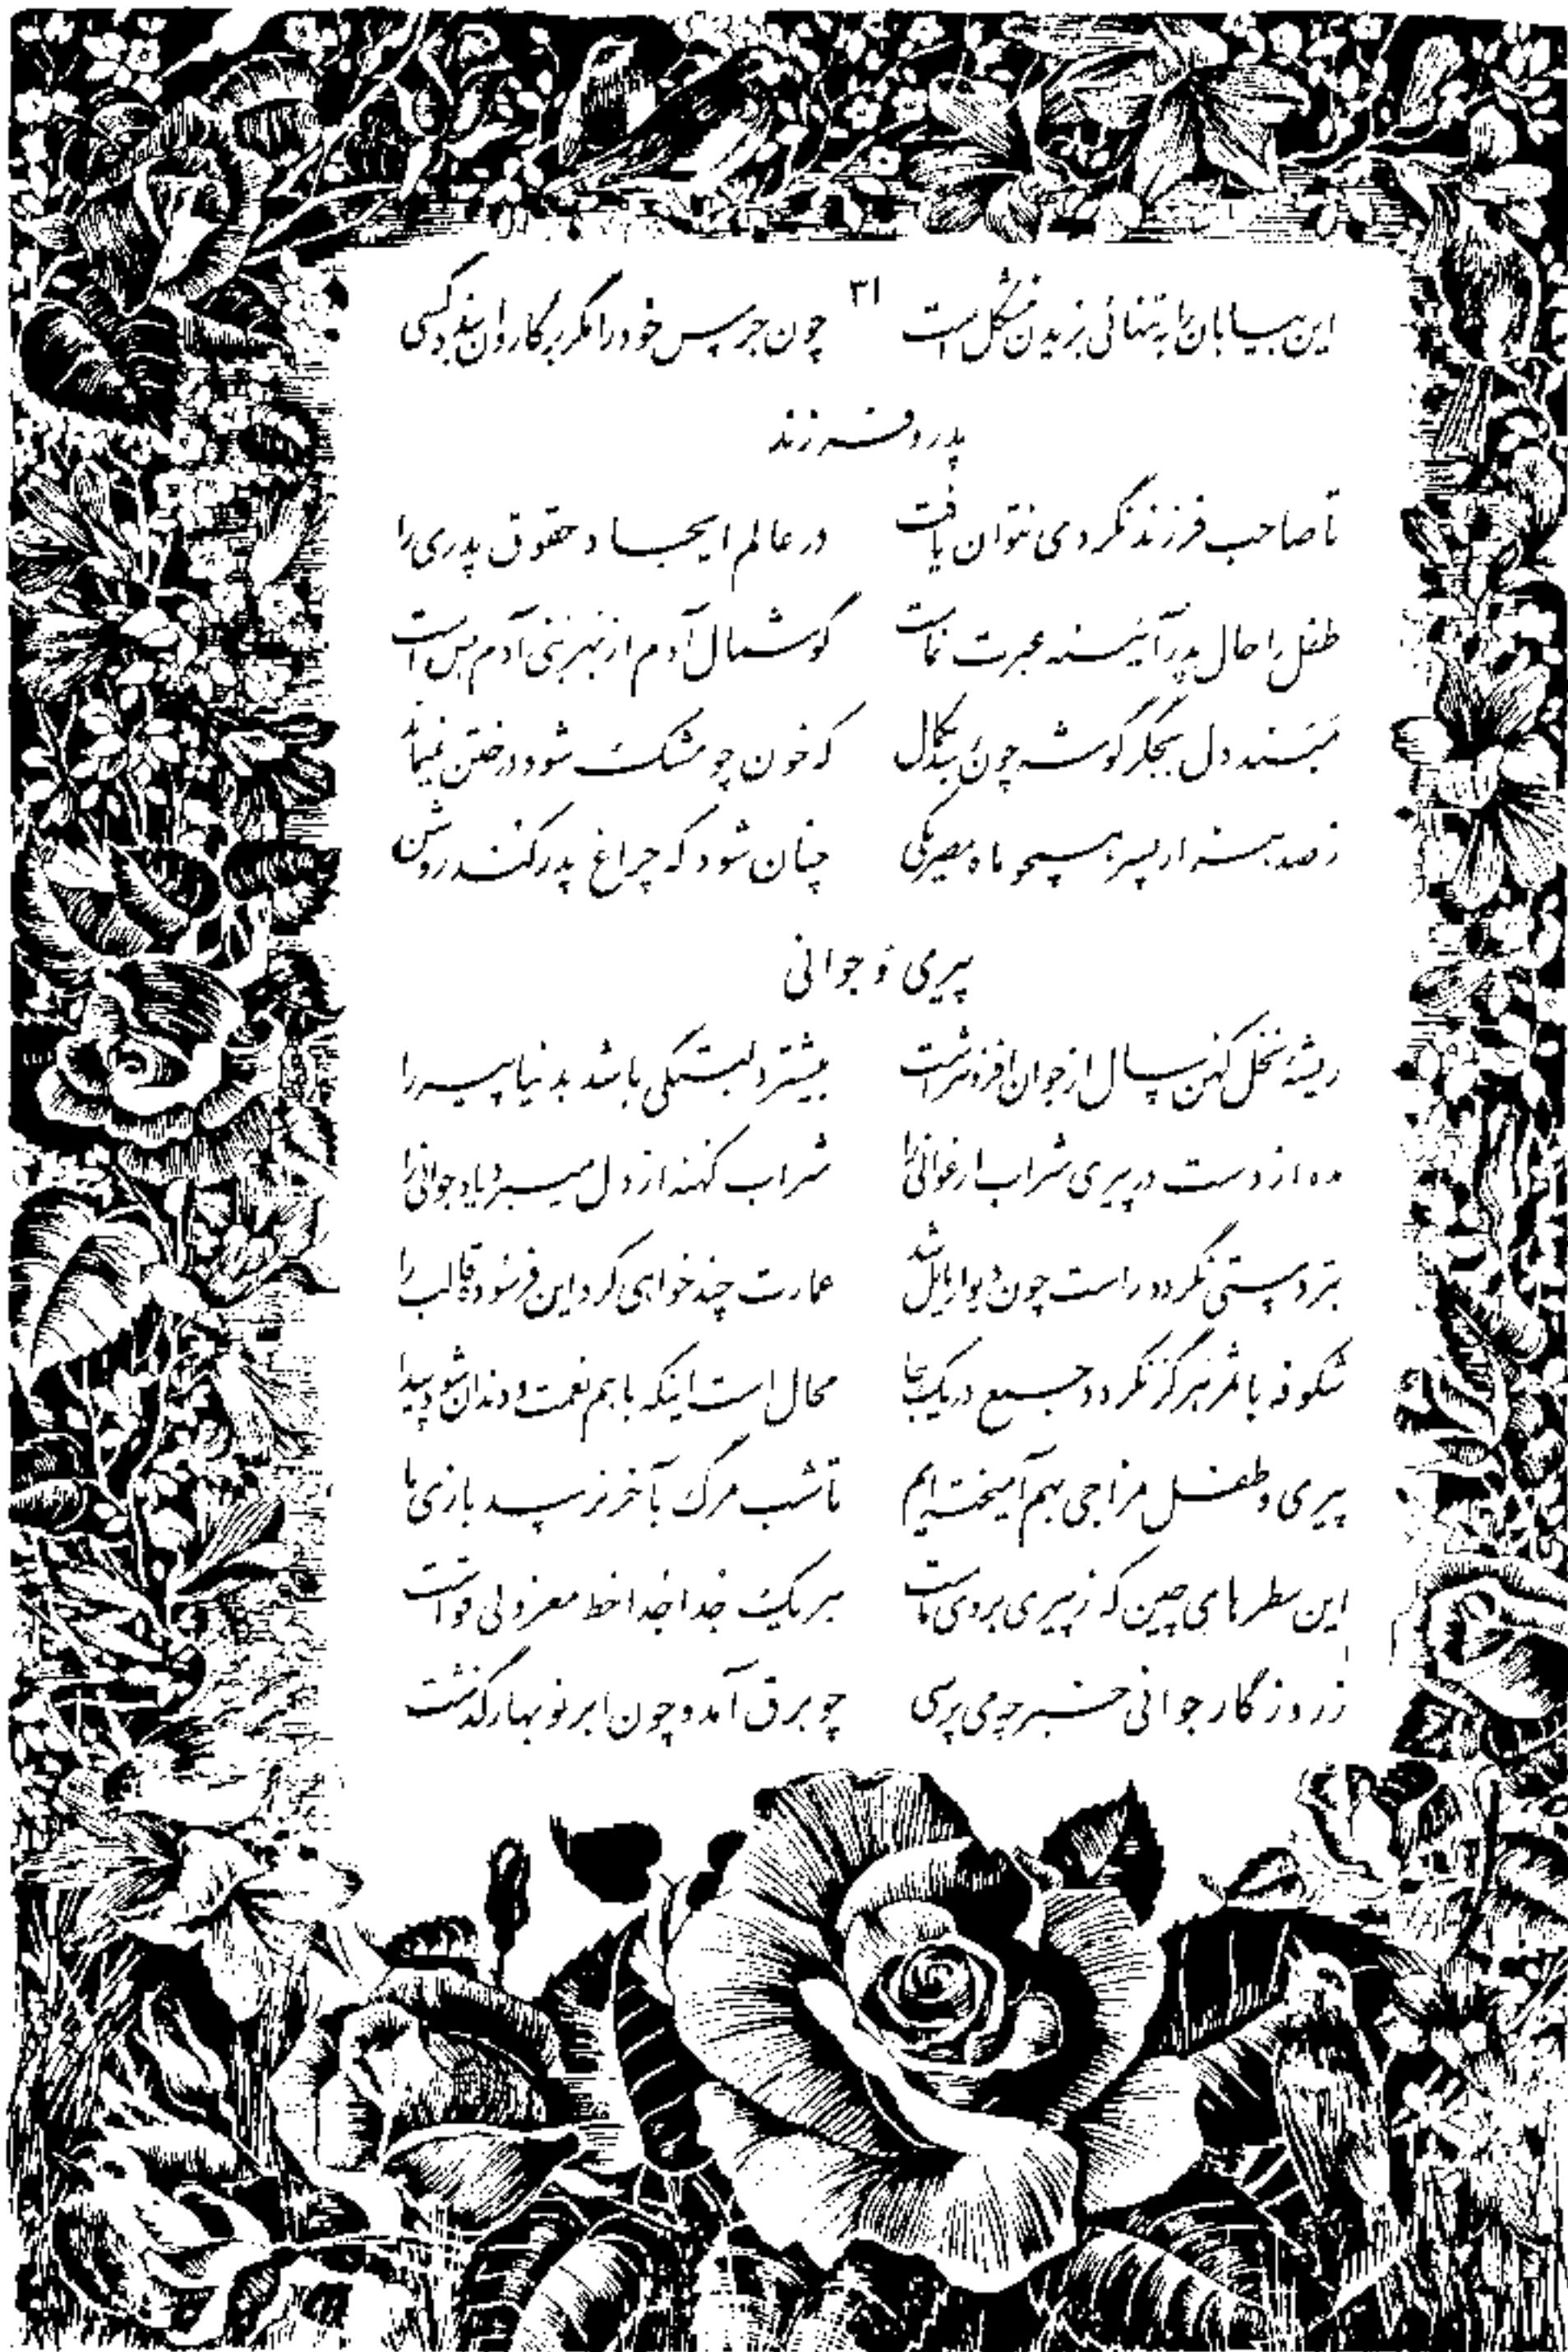 این بیابان را به تنهائی بریدن مشکل است ۳۱ چون جرس خود را مگر بر کاروان بندد کسی
پدر و فرزند
تا صاحب فرزند نگردی نتوان یافت در عالم ایجاد حقوق پدری را
طفل را حال پدر آئینه عبرت نماست گوشمال آدم از بهر بنی آدم بس است
مبند دل بجگر گوشه چون شد کامل که خون چو مشک شود در ختن نمیماند
ز صد هزار پسر همچو ماه مصر یکی چنان شود که چراغ پدر کند روشن
پیری و جوانی
ریشه نخل کهن سال از جوان افزونتر است بیشتر دلبستگی باشد بدنیا پیر را
مده از دست در پیری شراب ارغوانی را شراب کهنه از دل میبرد یاد جوانی را
بتردستی نگردد راست چون دیوار مایل شد عمارت چند خواهی کرد این فرسوده قالب را
شکوفه با ثمر هرگز نگردد جمع در یک جا محال است اینکه با هم نعمت و دندان شود پیدا
پیری و طفل مزاجی بهم آمیخته ایم تا شب مرگ بآخر نرسد بازی ما
این سطرهای چین که ز پیری بروی ماست هر یک جدا جدا خط معزولی قواست
ز روزگار جوانی خبر چه می پرسی چو برق آمد و چون ابر نوبهار گذشت